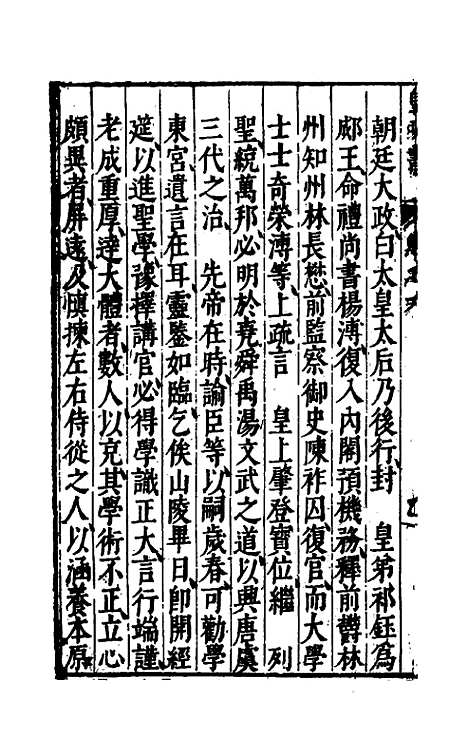 朝廷大政白太皇太后乃後行封　皇第祁鈺為
郕王命禮尚書楊溥復入內閣預機務釋前欝林
州知州林長懋前監察御史陳祚囚復官而大學
士士奇榮溥等上疏言　皇上肇登寶位繼　列
聖統萬邦必明於堯舜禹湯文武之道以興唐虞
三代之治　先帝在時諭臣等以嗣歲春可勸學
東宮遺言在耳靈鑒如臨乞俟山陵畢日即開經
筵以進聖學豫擇講官必得學識正大言行端謹
老成重厚達大體者數人以克其學術不正立心
頗異者屏遠及慎揀左右侍從之人以涵養本原